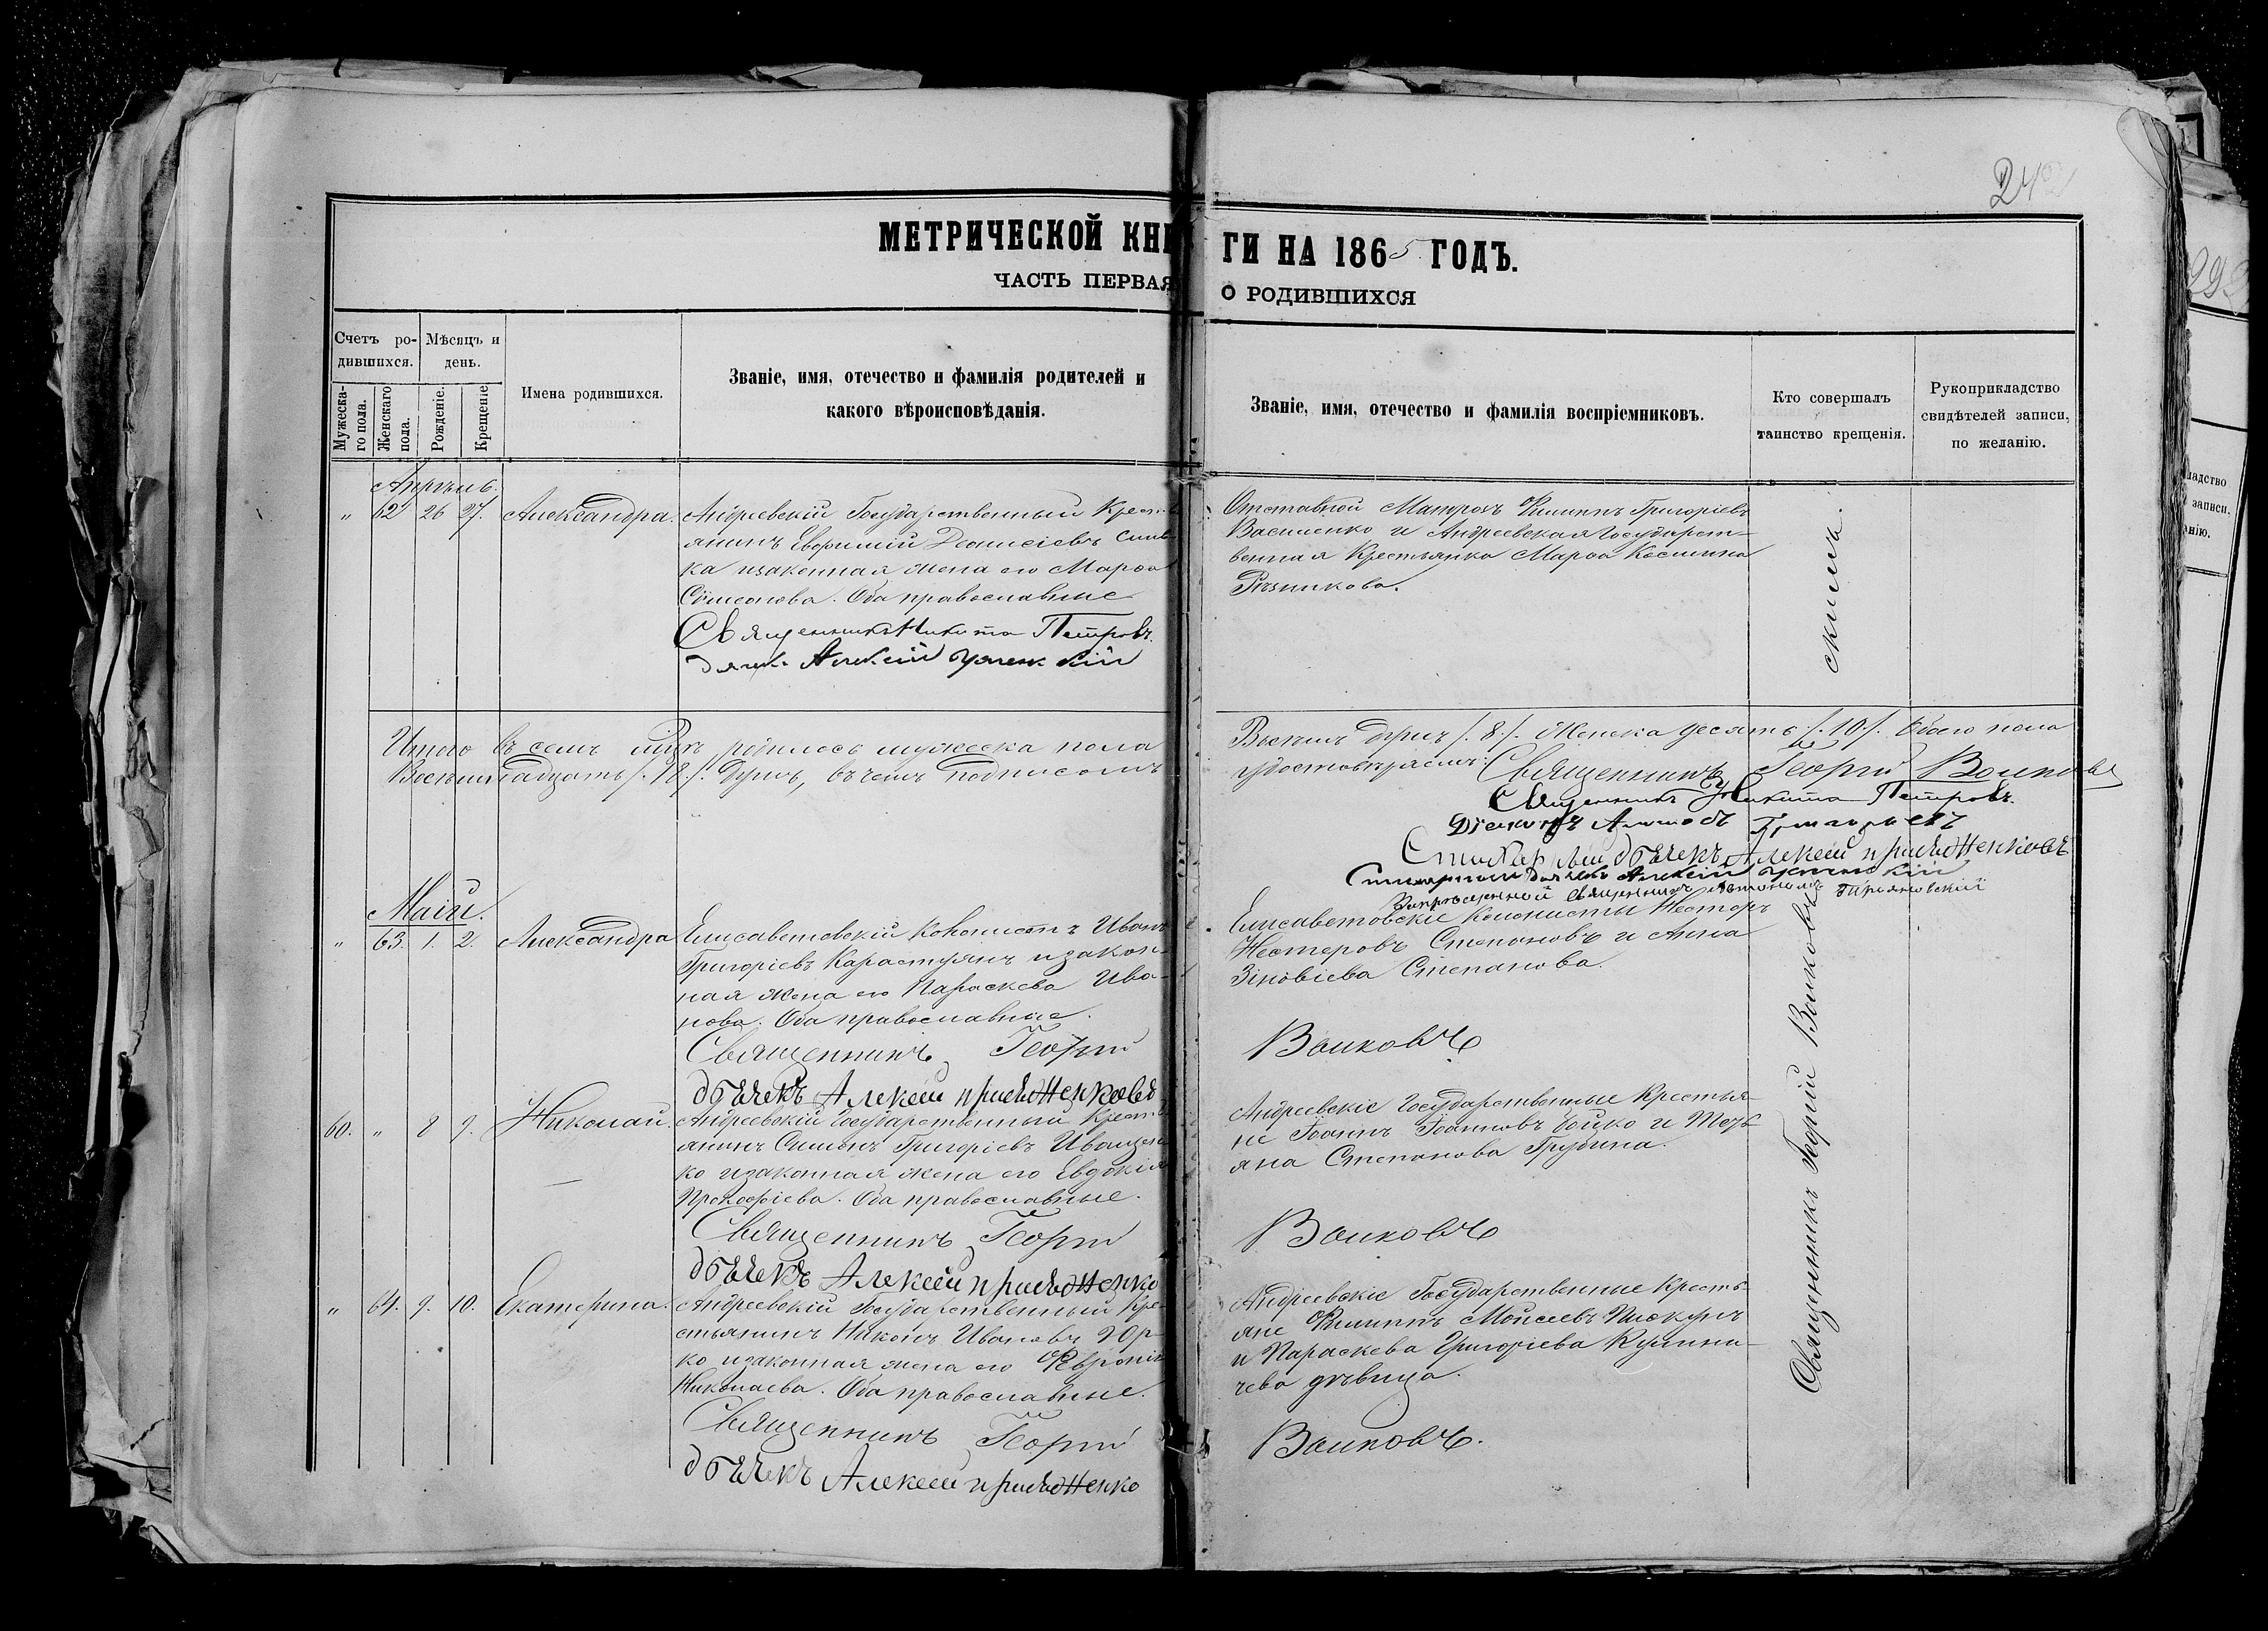 242
МЕТРИЧЕСКОЙ КНИ
ГИ НА 1865 ГОДЪ.
ЧАСТЬ ПЕРВАЯ
О РОДИВШИХСЯ
Счетъ ро-
дившихся.
Мѣсяцъ и
день.
Мужеска-
го пола.
Женскаго
пола.
Рожденіе.
Крещеніе
Имена родившихся.
Званіе, имя, отечество и фамилія родителей и
какого вѣроисповѣданія.
Званіе, имя, отечество и фамилія воспріемниковъ.
Кто совершалъ
таинство крещенія.
Рукоприкладство
свидѣтелей записи,
по желанію.
Апрѣль.
„ 62 26 27. Александра.
Андреевскій Государственный Кресть
янинъ Евфимій Діонисіевъ
ка изаконная жена его Марѳа
Сѵмеонова. Оба православные
Священникъ Никита Петровъ.
дячекъ Алексій
Отставной Матросъ Филиппъ Григоріевъ
Василенко и Андреевская Государст-
венная Крестьянка Марѳа Космина
Рѣзникова.
скимъ.
Итого въ семъ мцѣ родилось мужеска пола
Восемнадцать /.18/. душъ, въ чемъ подписомъ
Восемь душъ /.8/. Женска десять /.10/. Обоего пола
удостовѣряемъ: Священникъ Георгій Волковъ
Священникъ Никита Петровъ.
Діаконъ
Стихарный дьячекъ Алексій
Стихарный дьячекъ Алексій
священникъ
Маій.
„ 63. 1. 2. Александра
Елисаветовскій Колонистъ Иванъ
Григоріевъ Карастуянъ изакон-
ная жена его Параскева Ива-
нова. Оба православные.
Священникъ Георгій
дьячекъ Алексій
Елисаветовскіе Колонисты Несторъ
Нестеровъ Степановъ и Анна
Зіновіева Степанова.
Волковъ
60. „ 8 9. Николай.
Андреевскій Государственный Кресть
янинъ Симонъ Григоріевъ Иващен
ко изаконная жена его Евдокія
Прокофіева. Оба православные.
Священникъ Георгій
дьячекъ Алексій
Андреевскіе Государственные Крестья-
не Іоаннъ Іоанновъ Бойко и
яна Степанова Грубина.
Волковъ
„ 64. 9. 10. Екатерина.
Андреевскій Государственный Кре-
стьянинъ Никонъ Ивановъ Юр-
ко изаконная жена его Февронія
Николаева. Оба православные.
Священникъ Георгій
дьячекъ Алексій
Андреевскіе Государственные Кресть-
яне Филиппъ Мойсеевъ Пискунъ
и Параскева Григоріева
чева дѣвица.
Волковъ.
Священникъ Георгій Волковъ